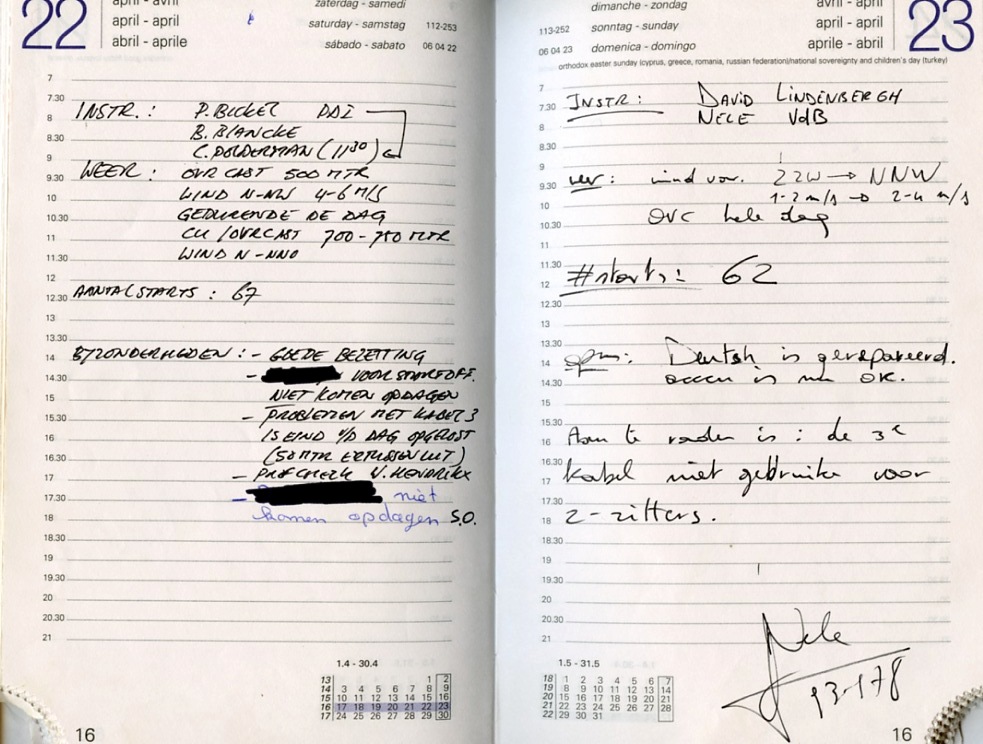 22
april - avril
april - april
abril - aprile
zaterdag - samedi
saturday - samstag
sábado - sabato
112-253
06 04 22
7
7.30
8 INSTR. : P. BICKEL DDI
8.30 B. BLANCKE
9 C. POLDERMAN (11³⁰)
9.30 WEER : OVR CAST 500 MTR
10 WIND N-NW 4-6 M/S
10.30 GEDURENDE DE DAG
11 CU / OVRCAST 700-750 MTR
11.30 WIND N-NNO
12
12.30 AANTAL STARTS : 67
13
13.30
14 BIJZONDERHEDEN : - GOEDE BEZETTING
14.30 - VOOR STARTOFF.
15 NIET KOMEN OPDAGEN
15.30 - PROBLEMEN MET KABEL 3
16 IS EIND V/D DAG OPGELOST
16.30 (50 MTR ERTUSSEN UIT)
17 - PROFCHECK W. HENDRIKX
17.30 - niet
18 komen opdagen S.O.
18.30
19
19.30
20
20.30
21
1.4 - 30.4
13 1 2
14 3 4 5 6 7 8 9
15 10 11 12 13 14 15 16
16 17 18 19 20 21 22 23
17 24 25 26 27 28 29 30
16
dimanche - zondag
sonntag - sunday
domenica - domingo
113-252
06 04 23
avril - april
april - april
aprile - abril
23
orthodox easter sunday (cyprus, greece, romania, russian federation)/national sovereignty and children's day (turkey)
7
7.30 INSTR : DAVID LINDENBERGH
8 NELE VdB
8.30
9
9.30 wr : wind var. ZZW → NNW
1-2 m/s → 2-4 m/s
10 OVC hele dag
10.30
11
11.30
12 #starts : 62
12.30
13
13.30
14 opm : Deutsh is gerepareerd.
14.30 accu is nu OK.
15
15.30
16 Aan te raden is : de 3e
16.30
17 kabel niet gebruiken voor
17.30
18 2-zitters.
18.30
19
19.30
20
20.30
21
Nele
93-178
1.5 - 31.5
18 1 2 3 4 5 6 7
19 8 9 10 11 12 13 14
20 15 16 17 18 19 20 21
21 22 23 24 25 26 27 28
22 29 30 31
16